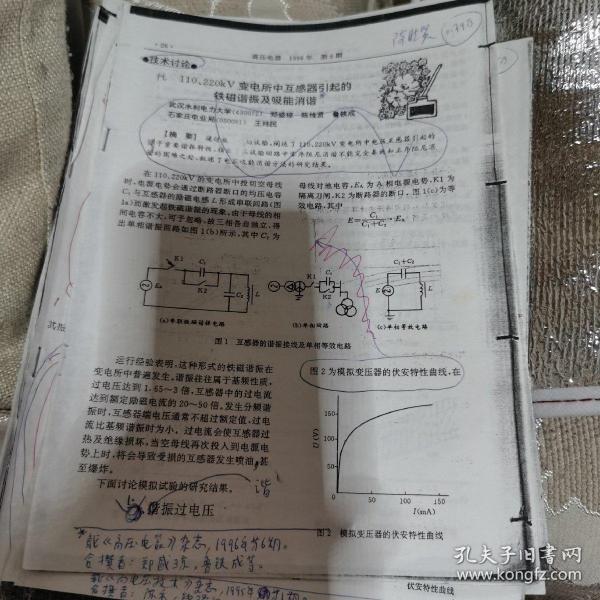 ·26·
高压电器 1996年 第6期
●技术讨论●
110、220kV变电所中互感器引起的
铁磁谐振及吸能消谐
武汉水利电力大学(430072) 郑盛璋 陈维贤 鲁铁成
石家庄电业局(050051)
【摘 要】
在110、220kV的变电所中投切空母线
时,电源电势会通过断路器断口的均压电容
C₁与互感器的励磁电感L形成串联回路(图
1a)而激发起铁磁谐振的现象。由于母线的相
间电容不大,可予忽略,故三相各自独立,得
出单相谐振回路如图1(b)所示,其中C₂为
母线对地电容,Eₐ为A相电源电势,K1为
隔离刀闸,K2为断路器的断口。图1(c)为等
效电路,其中
E=C₁/(C₁+C₂)·Eₐ
K1
C₁
K2
Eₐ
C₂
L
K1
C₁
K2
C₁+C₂
E
L
(a)单联铁磁谐振电路
(b)单相回路
(c)单相等效电路
图1 互感器的谐振接线及单相等效电路
运行经验表明,这种形式的铁磁谐振在
变电所中普遍发生。谐振往往属于基频性质,
过电压达到1.65~3倍,互感器中的过电流
达到额定励磁电流的20~50倍。发生分频谐
振时,互感器端电压通常不超过额定值,过电
流比基频谐振时为小。过电流会使互感器过
热及绝缘损坏,当空母线再次投入到电源电
势上时,将会导致受损的互感器发生喷油,甚
至爆炸。
下面讨论模拟试验的研究结果。
谐
谐振过电压
图2为模拟变压器的伏安特性曲线,在
U(V)
150
100
50
0
50
100
150
I(mA)
图2 模拟变压器的伏安特性曲线
载《高压电器》杂志,1996年第6期。
伏安特性曲线
孔夫子旧书网
www.kongfz.com